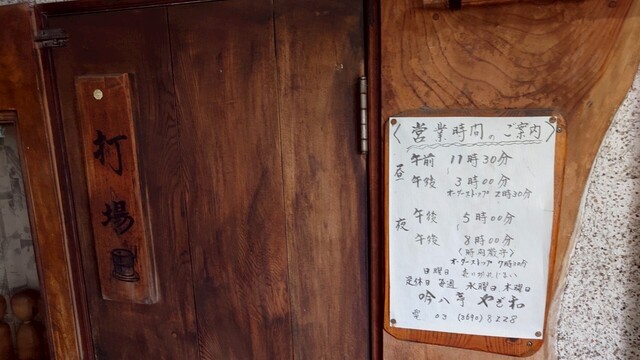 打場
〈営業時間のご案内〉
昼
午前 11時30分
午後 3時00分
オーダーストップ 2時30分
夜
午後 5時00分
午後 8時00分
(時間厳守)
オーダーストップ 7時30分
日曜日 売り切れじまい
定休日 毎週 水曜日 木曜日
吟八亭 やざ和
電 03 (3690) 8228